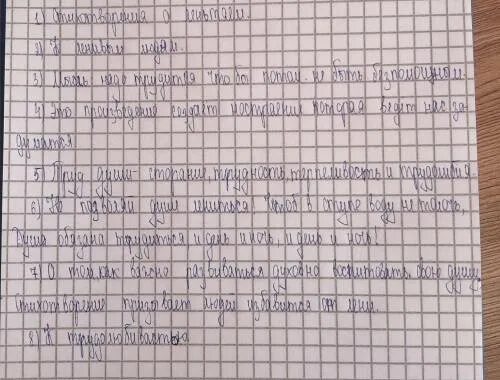 1) Стихотворения о лентяги.
2) К ленивым людям.
3) надо трудится чтобы потом не быть безпомощном.
4) Это произведение создаёт настраение которая ведёт нас за
думатся
5) Труд души- старание, трудность, терпеливость и трудолюбия.
6) Не позволяй душе лениться! Чтоб в ступе воду не толочь,
Душа обязана трудиться и день и ночь, и день и ночь!
7) О том, как важно развиваться духовно воспитовать свою душу,
Стихотворение людей избавится от лени.
8) К